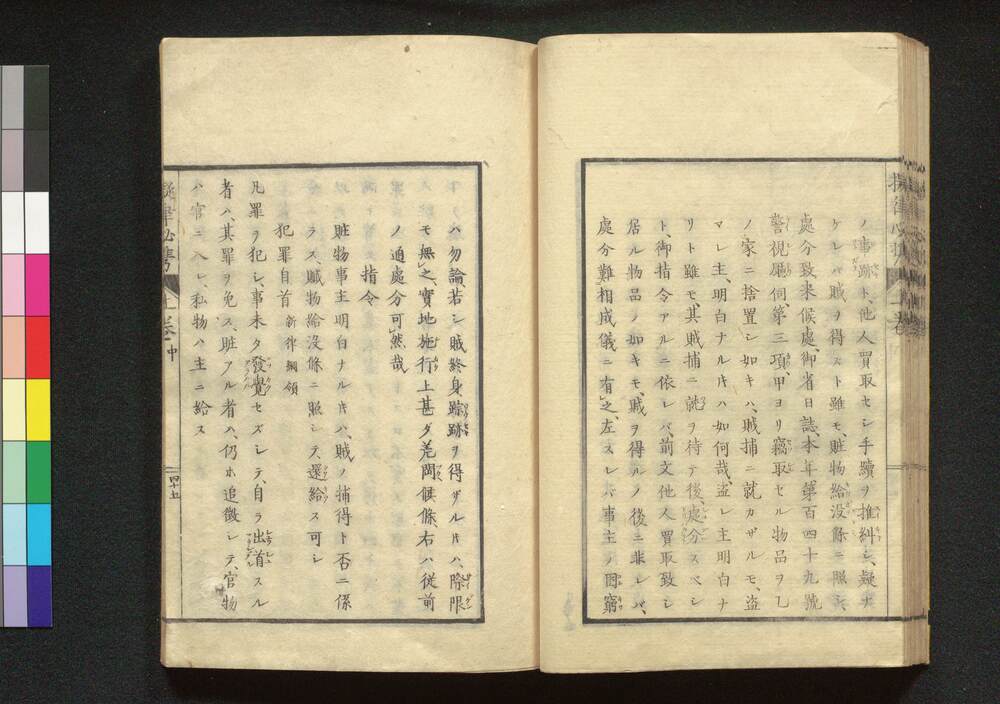 ノ書跡ト、他人買取セシ手續ヲ推糾シ、疑ナ
ケレバ賊ヲ得スト雖モ、贓物給没條ニ照シ、
處分致来候處、御省日誌、本年第百四十九號
警視廳伺、第三項、甲ヨリ竊取セル物品ヲ乙
ノ家ニ捨置シ如キハ、賊捕ニ就カザルモ、盗
マレ主、明白ナル片ハ如何哉、盗レ主明白ナ
リト雖モ、其賊捕ニ就ヲ待テ後、處分スベシ
ト、御指令アルニ依レバ、前文他人買取致シ
居ル物品ノ如キモ、賊ヲ得ルノ後ニ非レバ、
處分難相成儀ニ有之、左スレバ事主ノ困窮
ハ勿論、若シ賊終身踪跡ヲ得ザル片ハ、際限
モ無之、實地施行上甚ダ差岡候條、右ハ従前
ノ通處分可然哉
指令
贓物事主明白ナル片ハ、賊ノ捕得ト否ニ係
ラス、贓物給没條ニ照シテ、還給ス可シ
犯罪自首 新律綱領
凡罪ヲ犯シ、事未タ發覺セズシテ、自ラ出首スル
者ハ、其罪ヲ免ス、贓アル者ハ、仍ホ追徴シテ、官物
ハ官ニ入レ、私物ハ主ニ給ス
上巻 中
四十七